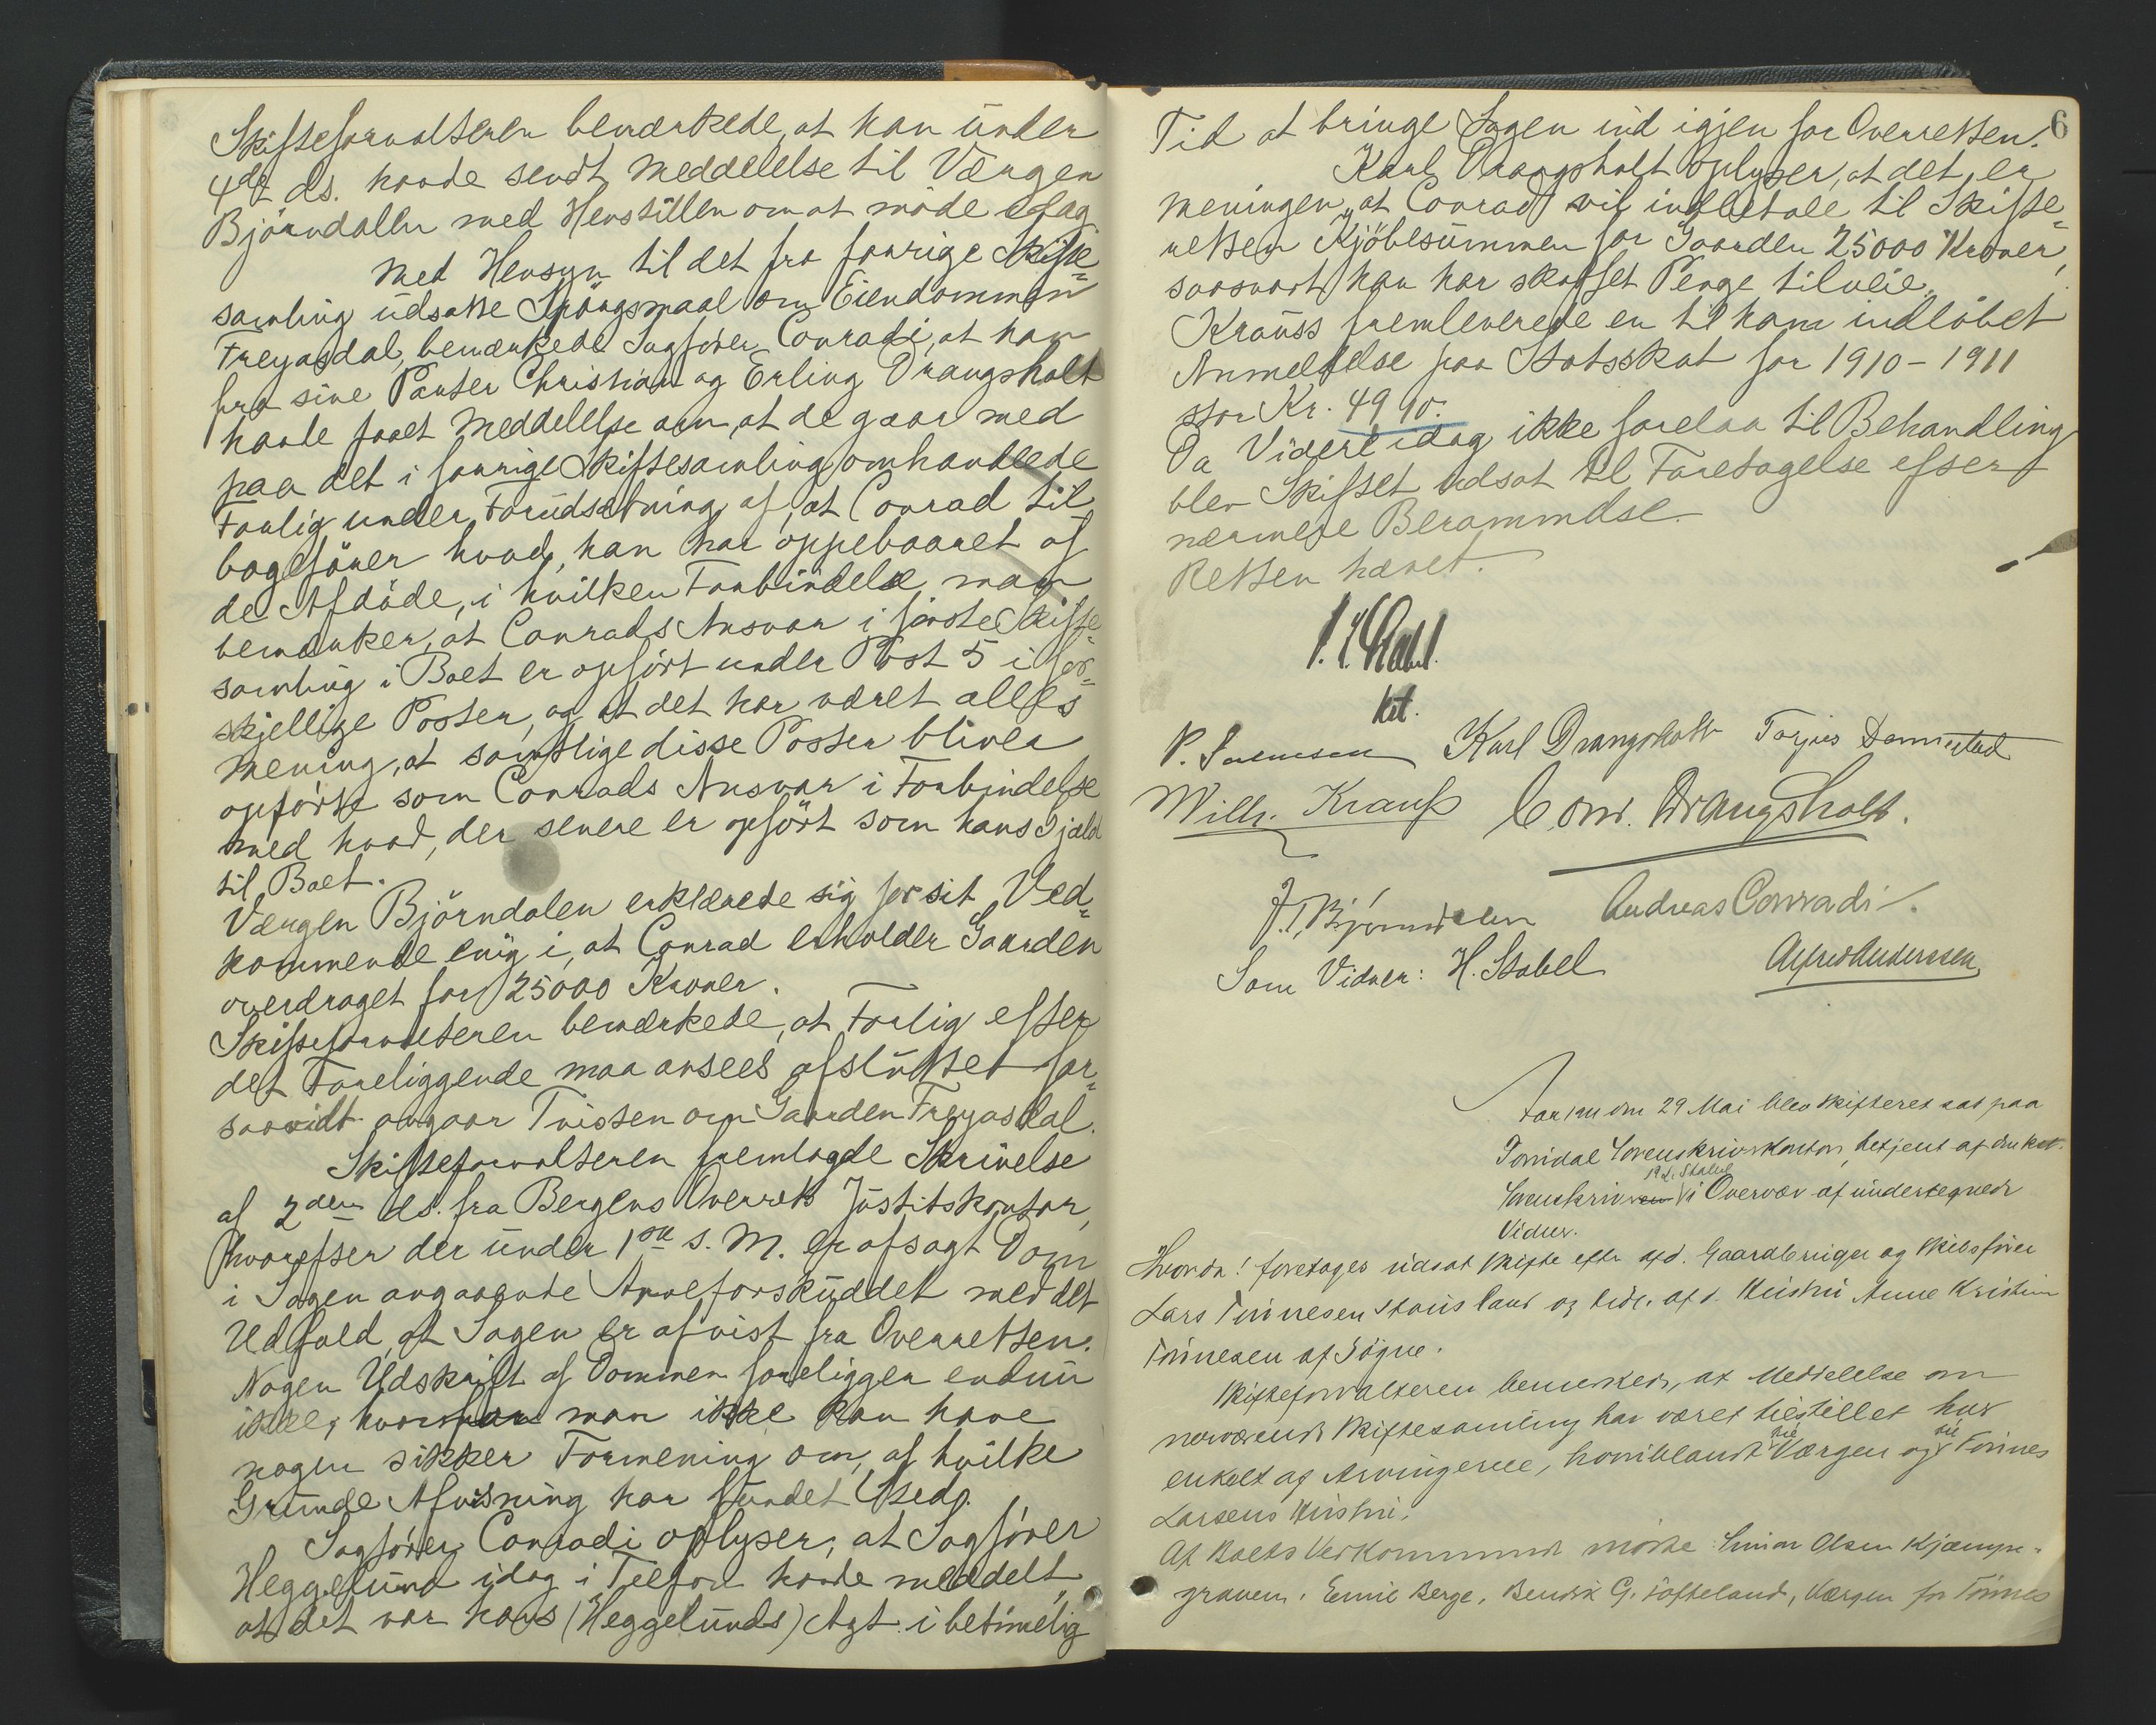 Skifteforvalteren bemærkede, at han under
4de ds. havde sendt Meddelelse til Værgen
Bjørndalen med Henstillen om at møde idag
Med Hensyn til det fra forrige Skifte=
samling udsatte Spørgsmaal om Eiendommen
Freyasdal, bemærkede Sagfører Conradi, at han
fra sine Parter Christian og Erling Drangsholt
havde faaet Meddelelse om, at de gaar med
paa det i forrige Skiftesamling omhandlede
Forlig under Forudsætning af, at Conrad til
bagefører hvad han har oppebaaret af
de Afdøde, i hvilken Forbindelse man
bemærker, at Conrads Ansvar i første Skifte=
samling i Boet er opført under Post 5 i for=
skjellige Poster, og at det har været alles
Mening, at samtlige disse Poster bliver
opførte som Conrads Ansvar i Forbindelse
med hvad, der senere er opført som hans Gjæld
til Boet.
Værgen Bjørndalen erklærede sig for sit Ved=
kommende enig i, at Conrad erholder Gaarden
overdraget for 25000 Kroner.
Skifteforvalteren bemærkede, at Forlig efter
det Foreliggende maa ansees afsluttet for=
saavidt angaar Tvisten om Gaarden Freyasdal.
Skifteforvalteren fremlagde Skrivelse
af 2den ds. fra Bergens Overrets Justitskontor,
hvorefter der under 1ste s. M. er afsagt Dom
i Sagen angaaende Arveforskuddet med det
Udfald, at Sagen er afvist fra Overretten.
Nogen Udskrift af Dommen foreligger endnu
ikke, hvorfor man ikke kan have
nogen sikker Formening om, af hvilke
Grunde Afvisning har fundet Sted.
Sagfører Conradi oplyser, at Sagfører
Heggelund idag i Telefon havde meddelt,
at det var hans (Heggelunds) Agt i betimelig
6
Tid at bringe Sagen ind igjen for Overretten.
Karl Drangsholt oplyser, at det er
Meningen, at Conrad vil indbetale til Skifte=
retten Kjøbesummen for Gaarden 25000 Kroner,
saasnart han har skaffet Penge tilveie.
Krauss fremleverede en til ham indløbet
Anmeldelse paa Statsskat for 1910 - 1911
stor Kr. 49 10.
Da Videre idag ikke forelaa til Behandling
blev Skiftet udsat til Foretagelse efter
nærmere Berammelse.
Retten hævet.
kst.
P. Salvesen Karl Drangsholt Torjus Dannestad
Wilh. Krauss Conr. Drangsholt.
J. T. Bjørndalen Andreas Conradi.
Som Vidner: H. Stabel Alfred Anderssen
Aar 1911 den 29 Mai blev skifteret sat paa
Torridal Sorenskriverkontor, betjent af den kst.
Sorenskriver Stabel i Overvær af undertegnede
Vidner.
Hvorda! foretages udsat skifte efter afd. Gaardbruger og Skibsfører
Lars Tønnesen Stausland og tidl. afd. Hustru Anne Kristine
Tønnesen af Søgne.
Skifteforvalteren bemærkede, at Meddelelse om
nærværende Skiftesamling har været tilstillet hver
enkelt af Arvingerne, hvoriblandt til Værgen og til Tønnes
Larsens Hustru.
Af Boets Vedkommende mødte Gunnar Olsen Kjæmpe=
graven, Emil Berge, Bendix G. Tofteland, Værgen for Tønnes